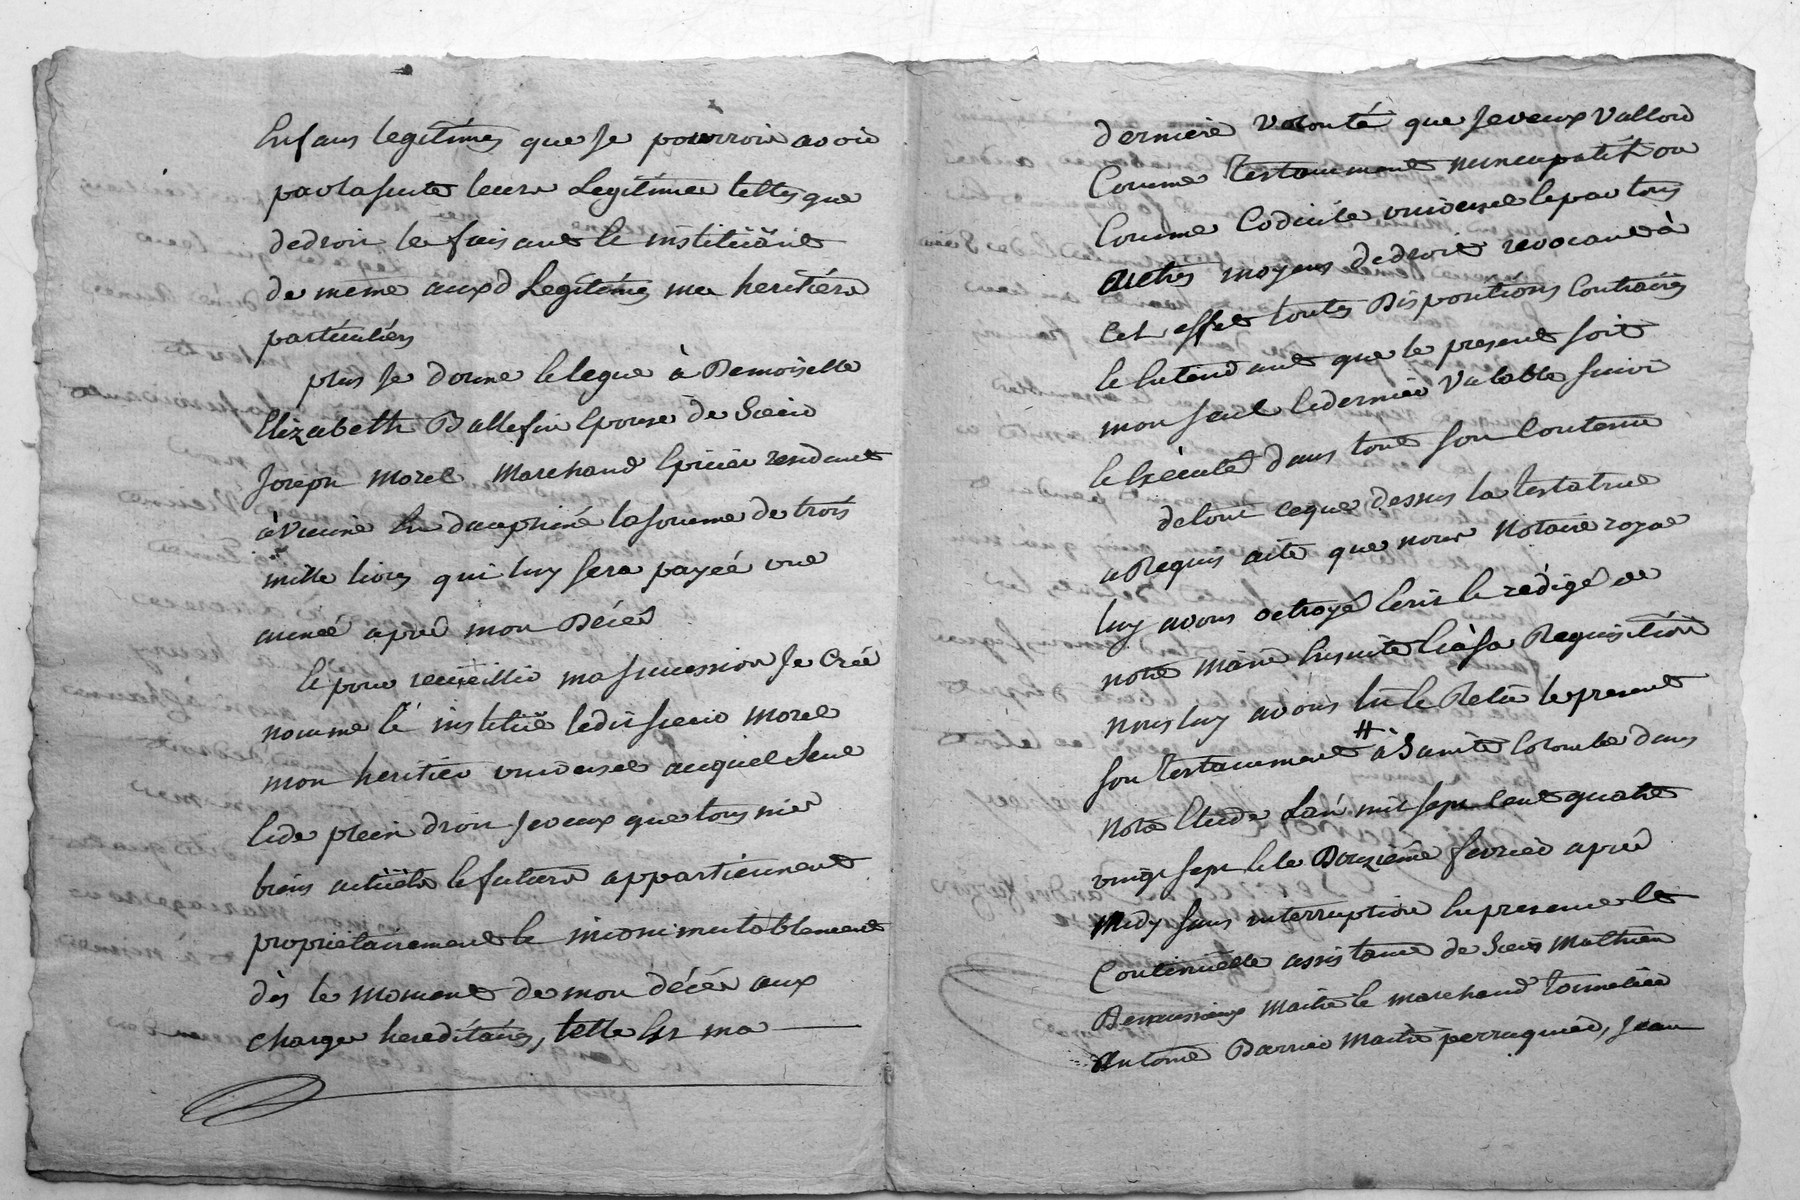 Enfans legitimes que Je pourrois avoir
par la suite leurs Legitimes telles que
de droit les faisant & instituant
de meme auxd Legitimes mes heritiers
particuliers
plus Je donne & legue à Demoiselle
Elizabeth Ballefin Epouse de Sieur
Joseph Morel Marchand Epicier rendant
à Vienne En dauphiné la somme de trois
mille livres qui luy sera payeé une
anneé après mon Décés
Et pour recueillir ma succession Je Creé
nomme & institue ledit sieur Morel
mon heritier universel auquel seul
& de plein droit Je veux que tous mes
biens actuels & futurs appartiennent
proprietairement & incommutablement
dès le moment de mon décés aux
charges hereditaires, telle Est ma
derniere volonté que Je veux Valloir
Comme testament nuncupatif ou
Comme Codicile universel & par tous
autres moyens de droit revocant à
Cet effet toutes Dispositions Contraires
& Entendant que le present soit
mon seul & dernier Valable suivi
& Exécuté dans tout son Contenu
de tout ce que dessus la testatrice
a Requis acte que nous Notaire royal
luy avons octroyé Ecrit & redigé de
notre main Ensuite & à sa Requisition
nous luy avons lu & Relu le present
son testament # à Sainte Colombe dans
notre Etude L'an mil sept Cent quatre
vingt sept & le Douzieme fevrier après
Midy sans interruption En presence &
Continuelle assistance de Sieurs Mathieu
maitre & marchand tonnelier
Antoine Barrier Maitre perruquier, Jean